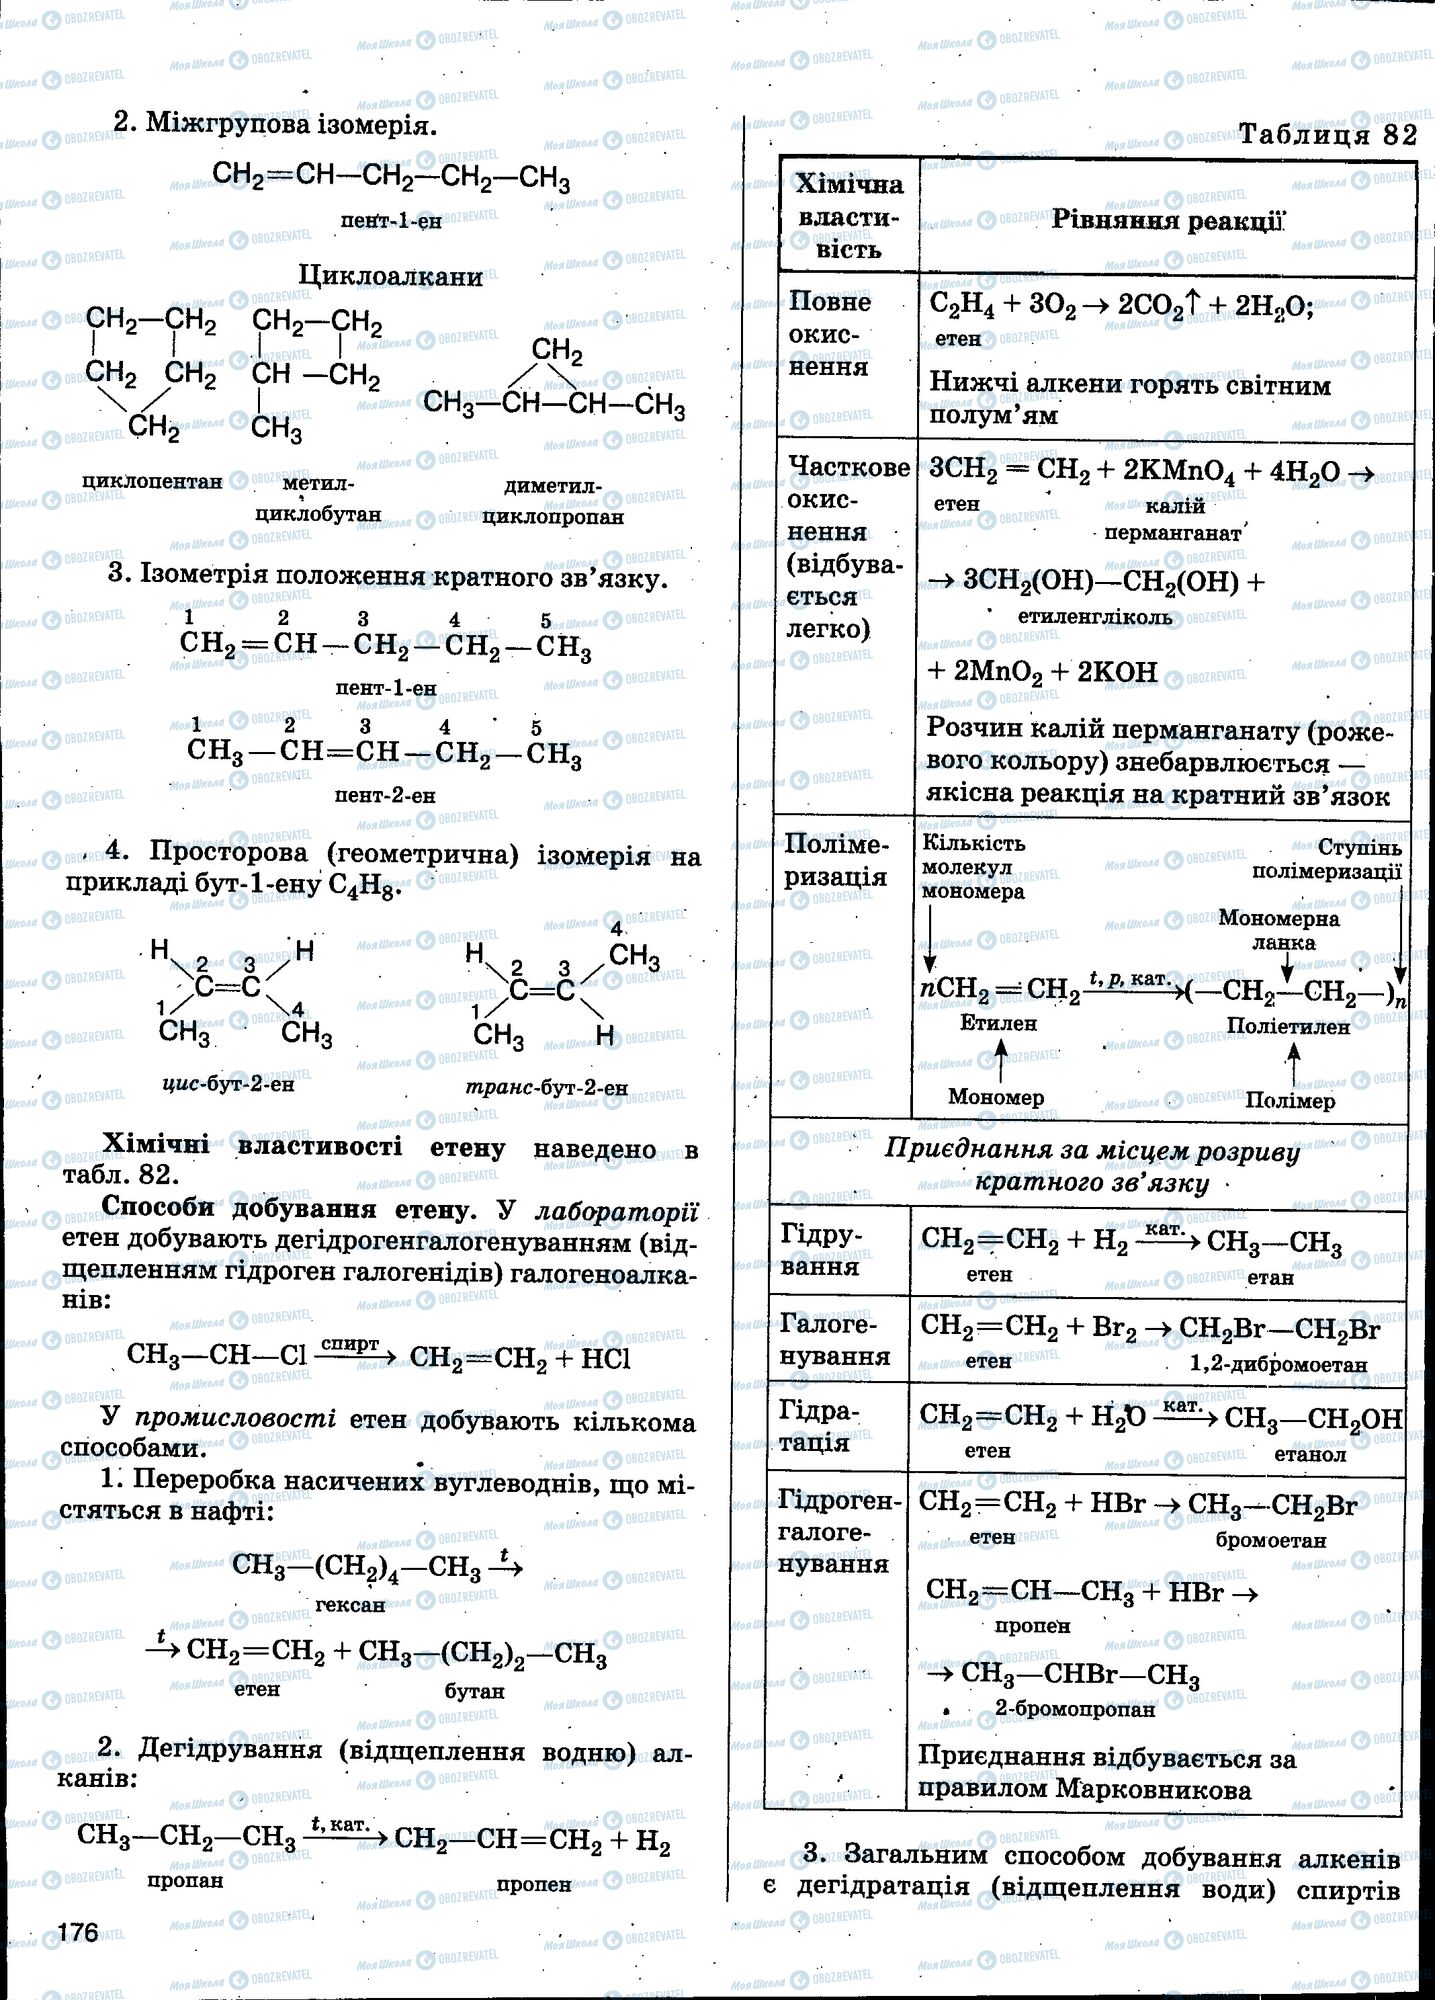 2. Міжгрупова ізомерія.
CH₂=CH—CH₂—CH₂—CH₃
пент-1-ен
Циклоалкани
CH₂—CH₂ CH₂—CH₂
CH₂
CH₂ CH₂ CH —CH₂
CH₃—CH—CH—CH₃
CH₂ CH₃
циклопентан метил- диметил-
циклобутан циклопропан
3. Ізометрія положення кратного зв’язку.
1 2 3 4 5
CH₂=CH—CH₂—CH₂—CH₃
пент-1-ен
1 2 3 4 5
CH₃—CH=CH—CH₂—CH₃
пент-2-ен
4. Просторова (геометрична) ізомерія на
прикладі бут-1-ену C₄H₈.
H 2 3 H H 2 3 4 CH₃
C=C C=C
1 CH₃ 4 CH₃ 1 CH₃ H
цис-бут-2-ен транс-бут-2-ен
Хімічні властивості етену наведено в
табл. 82.
Способи добування етену. У лабораторії
етен добувають дегідрогенгалогенуванням (від-
щепленням гідроген галогенідів) галогеноалка-
нів:
CH₃—CH—Cl —спирт→ CH₂=CH₂ + HCl
У промисловості етен добувають кількома
способами.
1. Переробка насичених вуглеводнів, що мі-
стяться в нафті:
CH₃—(CH₂)₄—CH₃ —t→
гексан
—t→ CH₂=CH₂ + CH₃—(CH₂)₂—CH₃
етен бутан
2. Дегідрування (відщеплення водню) ал-
канів:
CH₃—CH₂—CH₃ —t, кат.→ CH₂—CH=CH₂ + H₂
пропан пропен
176
Таблиця 82
Хімічна
власти-
вість
Рівняння реакції
Повне
окис-
нення
C₂H₄ + 3O₂ → 2CO₂↑ + 2H₂O;
етен
Нижчі алкени горять світним
полум’ям
Часткове
окис-
нення
(відбува-
ється
легко)
3CH₂ = CH₂ + 2KMnO₄ + 4H₂O →
етен калій
перманганат
→ 3CH₂(OH)—CH₂(OH) +
етиленгліколь
+ 2MnO₂ + 2KOH
Розчин калій перманганату (роже-
вого кольору) знебарвлюється —
якісна реакція на кратний зв’язок
Поліме-
ризація
Кількість
молекул
мономера
Ступінь
полімеризації
Мономерна
ланка
nCH₂ = CH₂ —t, p, кат.→ (—CH₂—CH₂—)ₙ
Етилен Поліетилен
Мономер Полімер
Приєднання за місцем розриву
кратного зв’язку
Гідру-
вання
CH₂=CH₂ + H₂ —кат.→ CH₃—CH₃
етен етан
Галоге-
нування
CH₂=CH₂ + Br₂ → CH₂Br—CH₂Br
етен 1,2-дибромоетан
Гідра-
тація
CH₂=CH₂ + H₂O —кат.→ CH₃—CH₂OH
етен етанол
Гідроген-
галоге-
нування
CH₂=CH₂ + HBr → CH₃—CH₂Br
етен бромоетан
CH₂=CH—CH₃ + HBr →
пропен
→ CH₃—CHBr—CH₃
2-бромопропан
Приєднання відбувається за
правилом Марковникова
3. Загальним способом добування алкенів
є дегідратація (відщеплення води) спиртів
МояШкола OBOZREVATEL